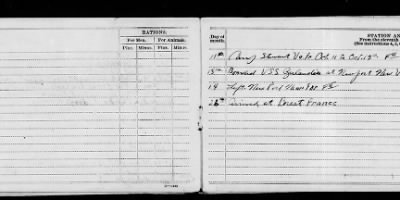 RATIONS.
For Men. For Animals.
Plus. Minus. Plus. Minus.
STATION AN
Day of month.
From the eleventh
(See instructions 4, 5,
11th Camp Stuart Va to Oct. 11 to Oct. 15th
15th Boarded U.S.S. at Newport New
14 Left New Port News
26th Arrived at Brest France